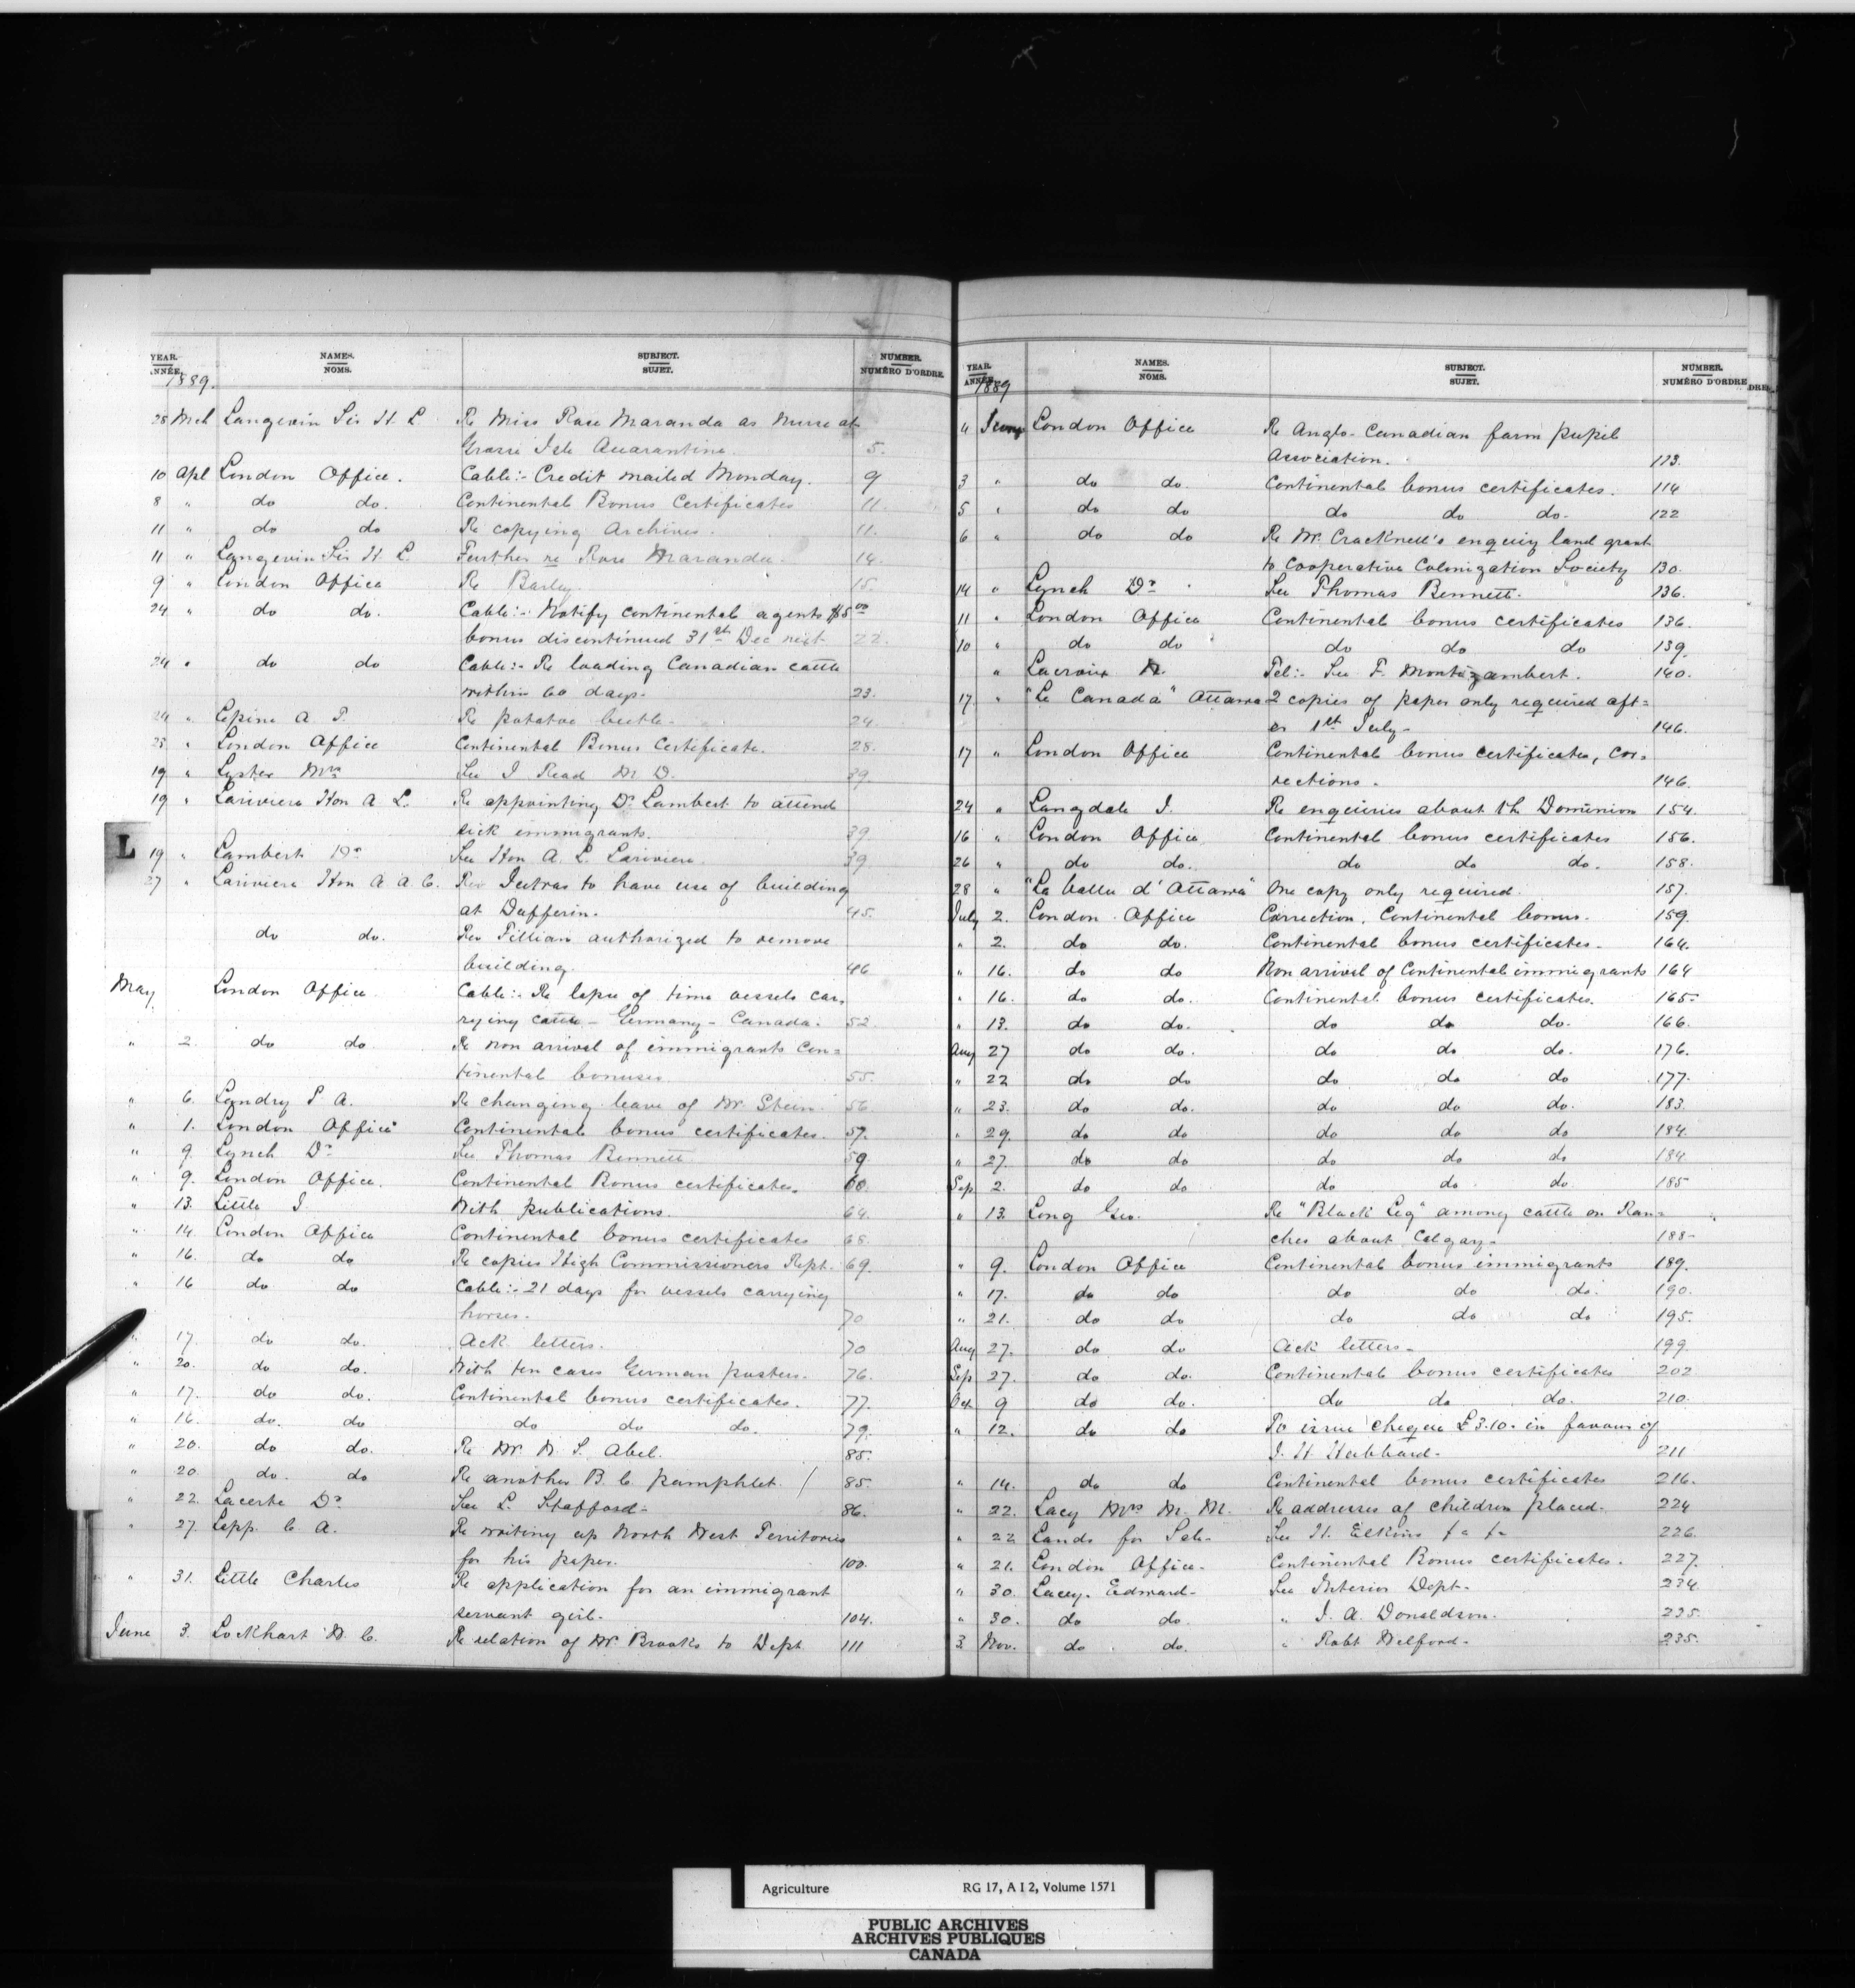 YEAR. NAMES. SUBJECT. NUMBER.
ANNÉE. NOMS. SUJET. NUMÉRO D'ORDRE.
1889.
28 Mch Langevin Sir H. L Re Miss Rose Maranda as nurse at
Grosse Isle Quarantine. 5.
10 Apl London Office. Cable:- Credit mailed Monday. 9
8 " do do. Continental Bonus Certificates 11.
11 " do do Re copying Archives. 11.
11 " Langevin Sir H. L. Further re Rose Maranda. 14.
9 " London Office Re Barley. 15.
24 " do do. Cable:- Notify continental agents $5.00
bonus discontinued 31st Dec next. 22.
24 " do do Cable:- Re loading Canadian cattle
within 60 days. 23.
24 " Lepine A. T. Re potatoe beetle. 24.
25 " London Office Continental Bonus Certificate. 28.
19 " Lyster Mrs See I Read M. D. 39
19 " Lariviere Hon A. L. Re appointing Dr Lambert to attend
sick immigrants. 39
L
19 " Lambert Dr See Hon A. L. Lariviere. 39
27 " Lariviere Hon A. A. C. Rev Jutras to have use of building
at Dufferin. 45.
do do. Rev Fillian authorized to remove
building. 46
May London Office Cable:- Re lapse of time vessels car-
rying cattle - Germany - Canada. 52.
" 2. do do Re non arrival of immigrants Con=
tinental bonuses. 55.
" 6. Landry P. A. Re changing leave of Mr. Stein. 56.
" 1. London Office Continental bonus certificates. 57.
" 9. Lynch Dr See Thomas Bennett. 59.
" 9. London Office. Continental Bonus certificates. 60.
" 13. Little J. With publications. 64.
" 14. London Office Continental bonus certificates 68.
" 16. do do Re copies High Commissioners Rept. 69.
" 16 do do Cable:- 21 days for vessels carrying
horses. 70
" 17. do do. Ack letters. 70
" 20. do do. With ten cases German posters. 76.
" 17. do do. Continental bonus certificates. 77.
" 16. do. do do do do. 79.
" 20. do do. Re Mr. W. S. Abel. 85.
" 20. do. do Re another B. C. pamphlet. / 85.
" 22. Lacerte Dr See L. Stafford- 86.
" 27. Lepp. C. A. Re writing up North West Territories
for his paper. 100.
" 31. Little Charles Re application for an immigrant
servant girl. 104.
June 3. Lockhart W. C. Re relation of Mr. Brooks to Dept. 111
YEAR. NAMES. SUBJECT. NUMBER.
ANNÉE. NOMS. SUJET. NUMÉRO D'ORDRE
1889
4 June London Office Re Anglo-Canadian farm pupil
Association. 113.
3 " do do. Continental bonus certificates. 114
5 " do do do do do. 122
6 " do do Re Mr. Cracknell's enquiry land grant
to Cooperative Colonization Society 130.
14 " Lynch Dr See Thomas Bennett. 136.
11 " London Office Continental bonus certificates 136.
10 " do do do do do 139.
" Lacroix Tel:- See F. Montizambert. 140.
17 " "Le Canada" Ottawa 2 copies of paper only required aft=
er 1st July- 146.
17 " London Office Continental bonus certificates, cor-
rections. 146.
24 " Langdale J. Re enquiries about the Dominion 154.
16 " London Office Continental bonus certificates 156.
26 " do do. do do do. 158.
28 " "La vallee d'Ottawa" One copy only required. 157.
July 2. London Office Correction. Continental bonus. 159.
" 2. do do. Continental bonus certificates. 164.
" 16. do do Non arrival of Continental immigrants 164
" 16. do do. Continental bonus certificates. 165-
" 13. do do. do do do. 166.
Aug 27 do do. do do do. 176.
" 22 do do do do do 177.
" 23. do do. do do do. 183.
" 29. do do do do do 184.
" 27. do do do do do 184
Sep 2. do do do do do. 185
" 13. Long Geo. Re "Black Leg" among cattle on Ran=
ches about Calgary- 188-
" 9. London Office Continental bonus immigrants 189.
" 17. do do do do do. 190.
" 21. do do do do do 195.
Aug 27. do do Ack letters- 199
Sep 27. do do. Continental bonus certificates 202
Oct 9 do do. do do do. 210.
" 12. do do To issue cheque £3.10. in favour of
J. H. Hubbard- 211
" 14. do do Continental bonus certificates 216.
" 22. Lacy Mrs M. M. Re addresses of children placed. 224
" 22 Lands for Sale- See H. Elkins 226.
" 21. London Office. Continental Bonus certificates. 227.
" 30. Lacey. Edward- See Interior Dept- 234
" 30. do do. " J. A. Donaldson. 235.
3 Nov. do do. " Robt Welford- 235.
Agriculture RG 17, A I 2, Volume 1571
PUBLIC ARCHIVES
ARCHIVES PUBLIQUES
CANADA